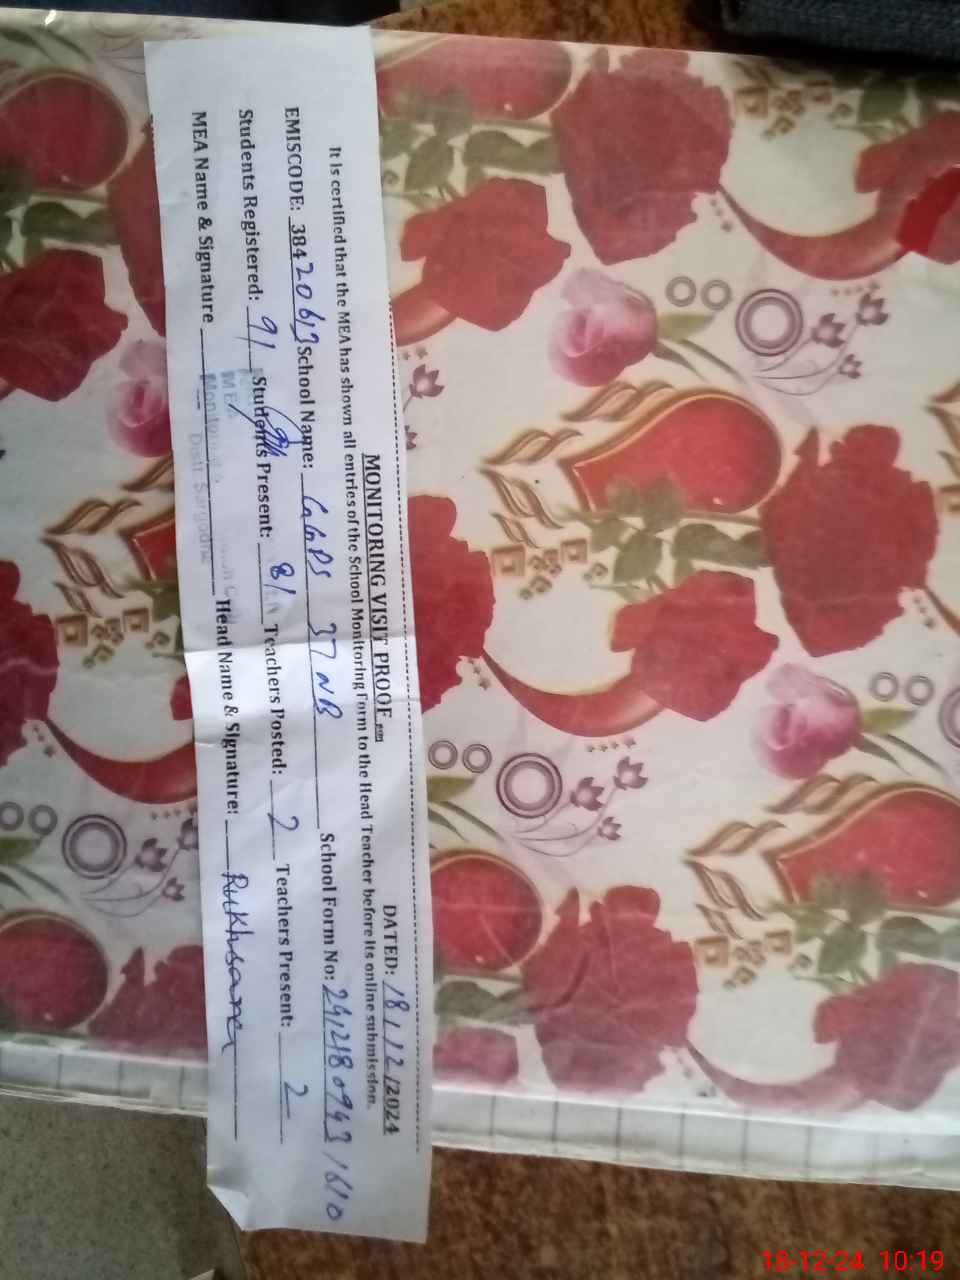 MONITORING VISIT PROOF DATED: 18/12/2024
It is certified that the MEA has shown all entries of the School Monitoring Form to the Head Teacher before its online submission.
EMISCODE: 38420613 School Name: GGPS 37 NB School Form No: 2412180943 1610
Students Registered: 91 Students Present: 81 Teachers Posted: 2 Teachers Present: 2
MEA Name & Signature Head Name & Signature: Rukhsana
MEA
Distt. Sargodha
18-12-24 10:19